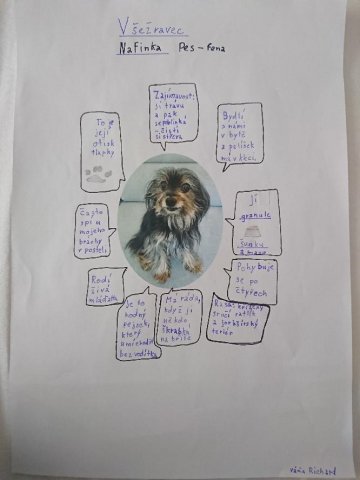 Všežravec
Nafinka Pes-Fena
Zajímavost:
jí trávu
a pak
se blinká
- čistí
si střeva
To je
její
otisk
tlapky
Bydlí
s námi
v bytě
a pelíšek
má v kleci.
Často
spí u
mojeho
bráchy
v posteli
jí
granule
šunku
a maso
Rodí
živá
mláďata
Pohybuje
se po
čtyřech
Je to
hodný
pejsek,
který
umí chodit
bez vodítka
Má ráda,
když jí
někdo
škrabká
na břiše
kříženec
ratlík
a jorkšírský
teriér
Richard